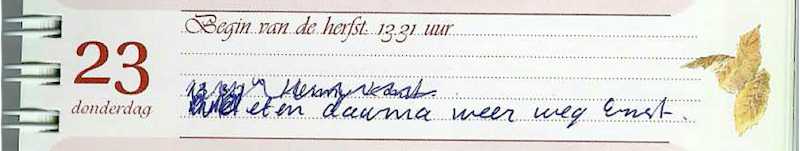 Begin van de herfst 13.31 uur
23
donderdag
eten daarna weer weg Ernst.